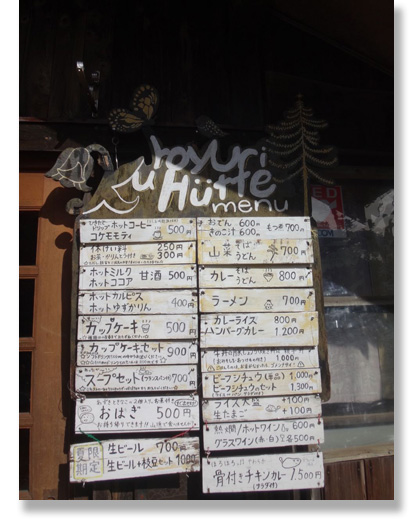 Hütte
menu
ホットコーヒー 500円
コケモモティ
休けい料 250円
300円
ホットミルク 甘酒 500円
ホットココア
ホットカルピス 400円
ホットゆずかりん
カップケーキ 500円
カップケーキセット 900円
スープセット 700円
おはぎ 500円
夏限定 生ビール 700円
生ビール+枝豆セット 1000
おでん 600円 もつ煮 700円
きのこ汁 600円
山菜 そば うどん 700円
カレー そば うどん 800円
ラーメン 700円
カレーライス 800円
ハンバーグカレー 1200円
1000円
ビーフシチュウ(単品) 1,000円
ビーフシチュウセット 1,300円
ライス大盛 +100円
生たまご +100円
熱燗/ホットワイン 600円
グラスワイン(赤・白) 各500円
骨付きチキンカレー 1,500円